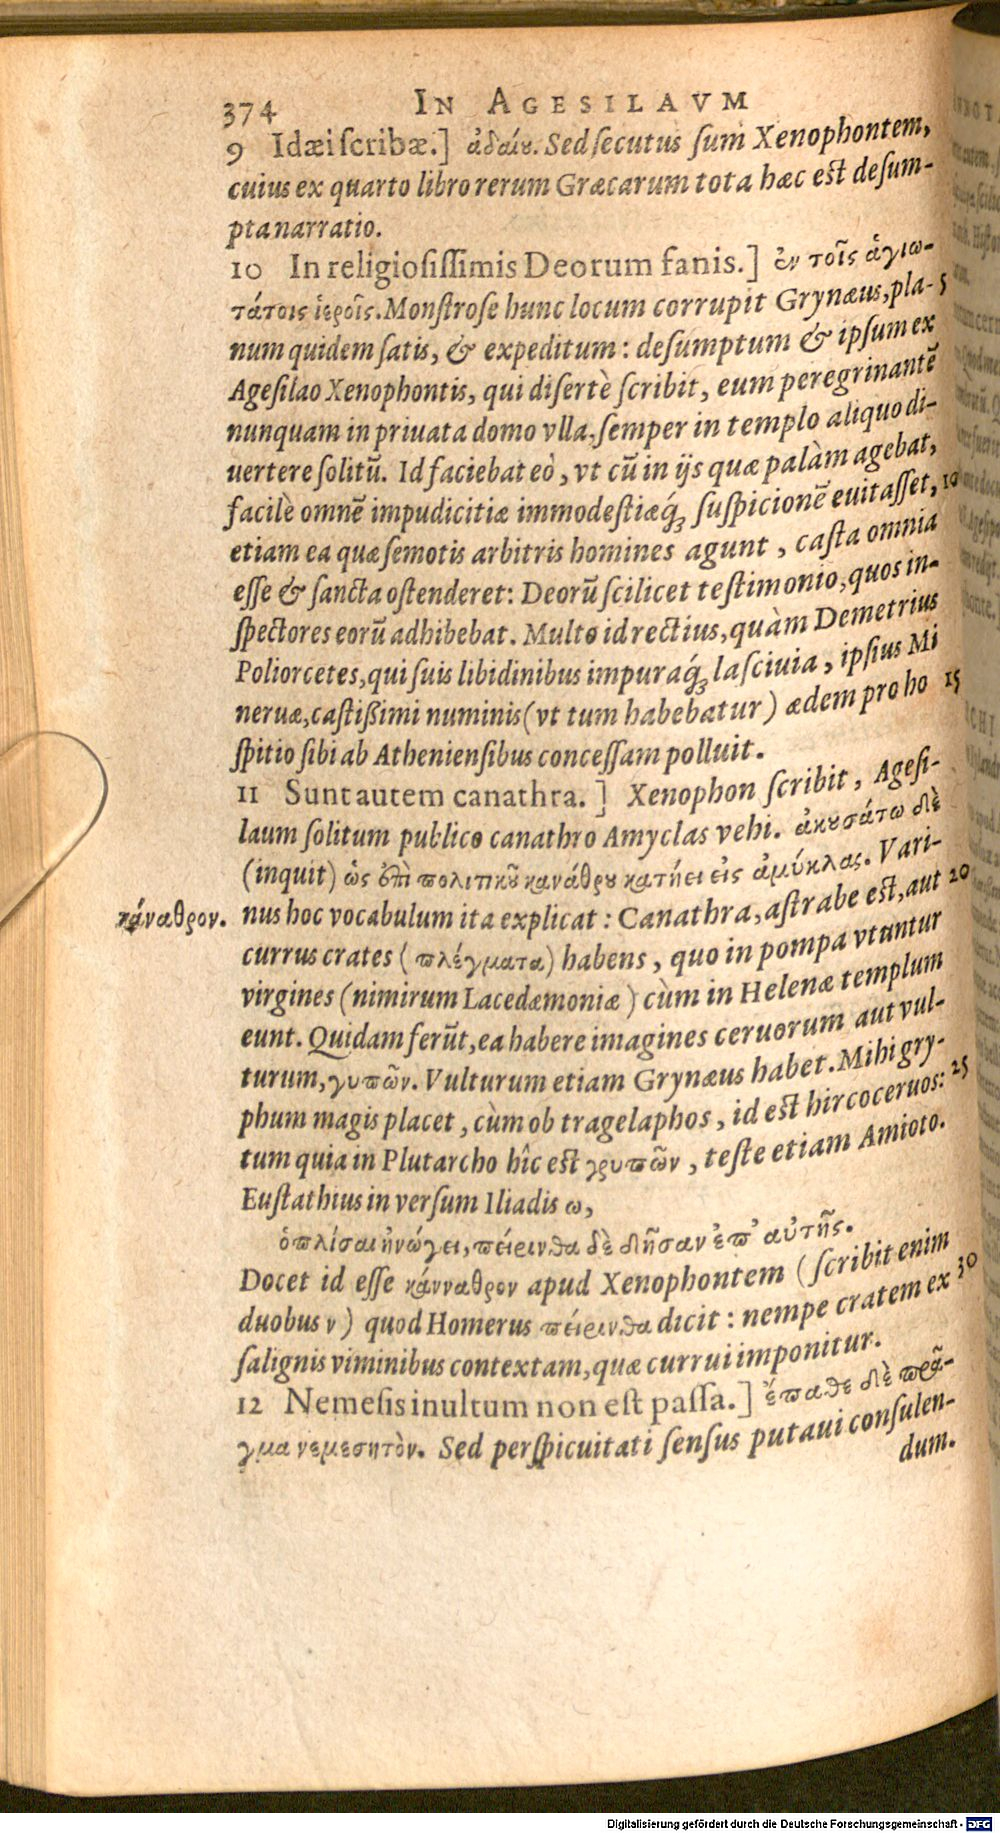 374 IN AGESILAVM
9 Idæi scribæ.] ἀδαίου. Sed secutus sum Xenophontem,
cuius ex quarto libro rerum Græcarum tota hæc est desum-
pta narratio.
10 In religiosissimis Deorum fanis.] ἐν τοῖς ἁγιω-
τάτοις ἱεροῖς. Monstrose hunc locum corrupit Grynæus, pla- 5
num quidem satis, & expeditum: desumptum & ipsum ex
Agesilao Xenophontis, qui disertè scribit, eum peregrinantē
nunquam in priuata domo vlla, semper in templo aliquo di-
uertere solitū. Id faciebat eò, vt cū in ijs quæ palàm agebat,
facilè omnē impudicitiæ immodestiæq́; suspicionē euitasset, 10
etiam ea quæ semotis arbitris homines agunt, casta omnia
esse & sancta ostenderet: Deorū scilicet testimonio, quos in-
spectores eorū adhibebat. Multo id rectius, quàm Demetrius
Poliorcetes, qui suis libidinibus impuraq́; lasciuia, ipsius Mi
neruæ, castißimi numinis (vt tum habebatur) ædem pro ho 15
spitio sibi ab Atheniensibus concessam polluit.
11 Sunt autem canathra.] Xenophon scribit, Agesi-
laum solitum publico canathro Amyclas vehi. ἀκουσάτω δὲ
(inquit) ὡς ἐπὶ πολιτικοῦ κανάθρου κατῄει εἰς ἀμύκλας. Vari-
κάναθρον. nus hoc vocabulum ita explicat: Canathra, astrabe est, aut 20
currus crates (πλέγματα) habens, quo in pompa vtuntur
virgines (nimirum Lacedæmoniæ) cùm in Helenæ templum
eunt. Quidam ferūt, ea habere imagines ceruorum aut vul-
turum, γυπῶν. Vulturum etiam Grynæus habet. Mihi gry-
phum magis placet, cùm ob tragelaphos, id est hircoceruos: 25
tum quia in Plutarcho hîc est γρυπῶν, teste etiam Amioto.
Eustathius in versum Iliadis ω,
ὁπλίσαι ἠνώγει, πείρινθα δὲ δῆσαν ἐπ' αὐτῆς.
Docet id esse κάνναθρον apud Xenophontem (scribit enim 30
duobus ν) quod Homerus πείρινθα dicit: nempe cratem ex
salignis viminibus contextam, quæ currui imponitur.
12 Nemesis inultum non est passa.] ἔπαθε δὲ πρᾶ-
γμα νεμεσητὸν. Sed perspicuitati sensus putaui consulen-
dum.
Digitalisierung gefördert durch die Deutsche Forschungsgemeinschaft - DFG